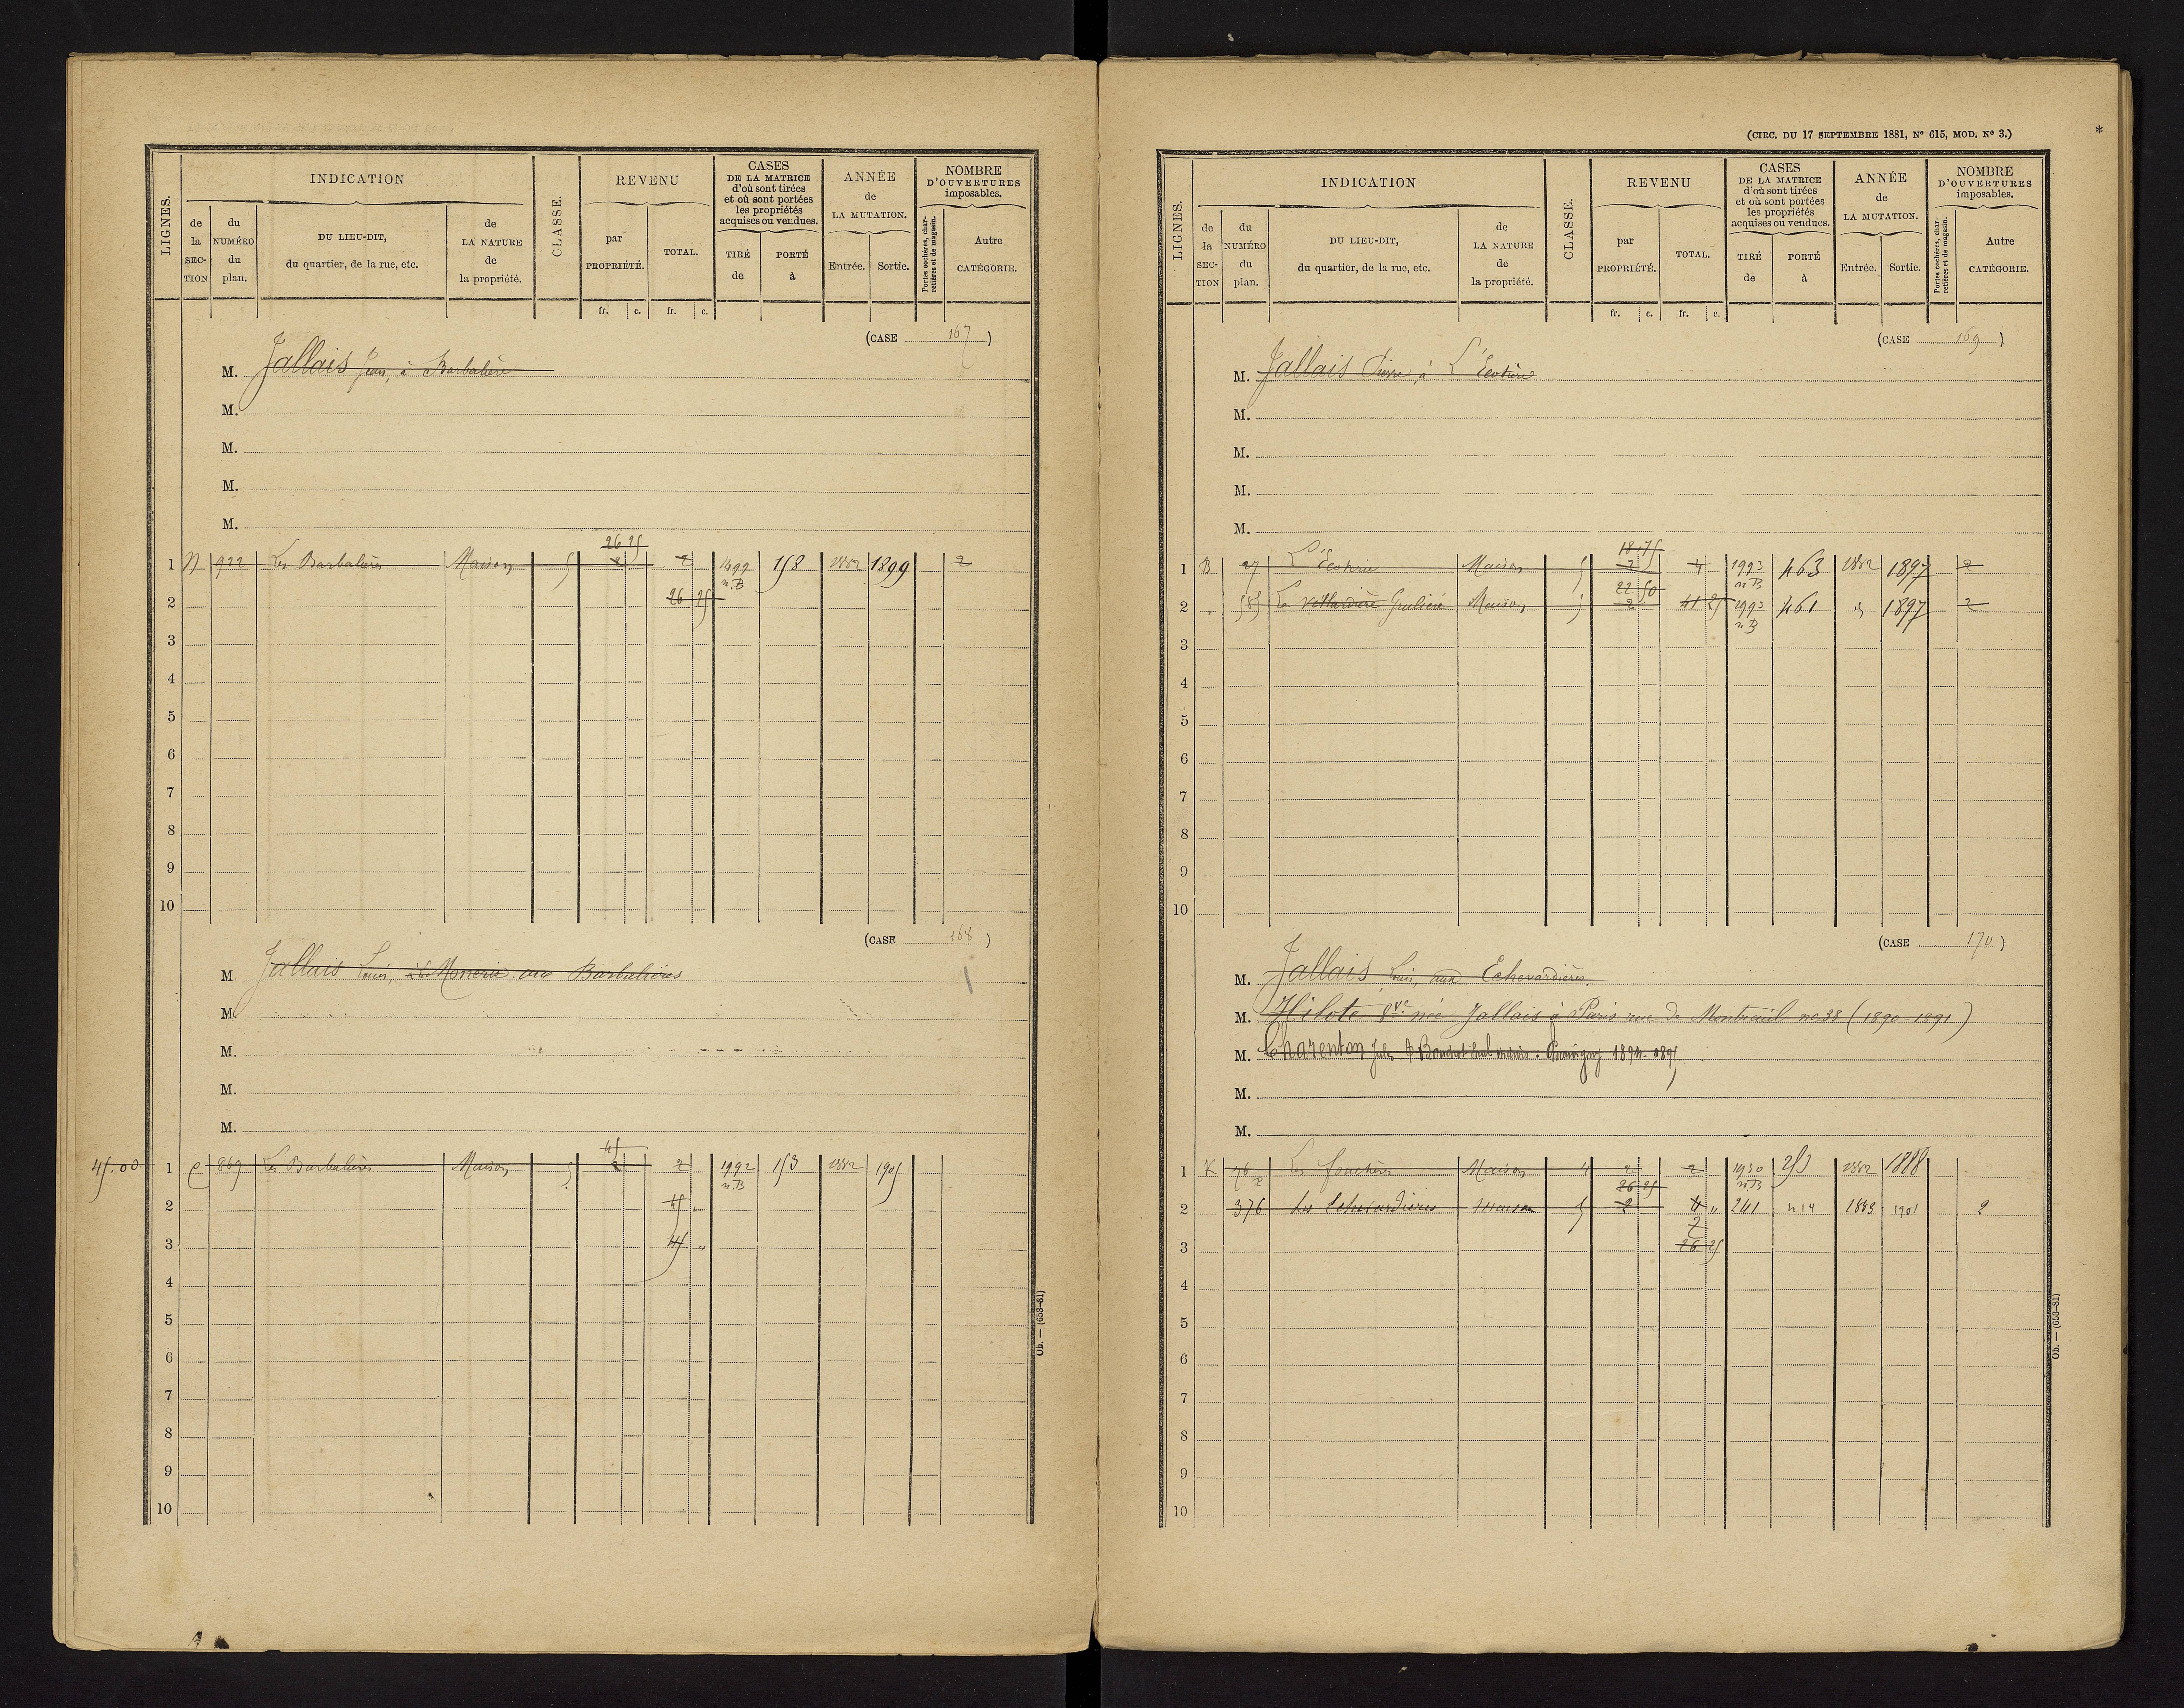 LIGNES.
INDICATION
de la SEC-TION
du NUMÉRO du plan.
DU LIEU-DIT, du quartier, de la rue, etc.
de LA NATURE de la propriété.
CLASSE.
REVENU
par PROPRIÉTÉ.
TOTAL.
fr. c. fr. c.
CASES DE LA MATRICE d'où sont tirées et où sont portées les propriétés acquises ou vendues.
TIRÉ de
PORTÉ à
ANNÉE de LA MUTATION.
Entrée. Sortie.
NOMBRE D'OUVERTURES imposables.
Portes cochères, charretières et de magasin.
Autre CATÉGORIE.
(CASE 167)
M. Jallais Jean, à Barbalière
M.
M.
M.
M.
26 25
1 922 Les Barbalières Maison 5 2 2 1499 n.B 158 1882 1899 2
2 26 25
3
4
5
6
7
8
9
10
(CASE 168)
M. Jallais Louis, aux Barbalières
M.
M.
M.
M.
45
45.00 1 869 Les Barbalières Maison 5 2 2 1992 n.B 153 1882 1905
2 45
3 45 "
4
5
6
7
8
9
10
Ob. — (653-81)
(CIRC. DU 17 SEPTEMBRE 1881, N° 615, MOD. N° 3.)
*
LIGNES.
INDICATION
de la SEC-TION
du NUMÉRO du plan.
DU LIEU-DIT, du quartier, de la rue, etc.
de LA NATURE de la propriété.
CLASSE.
REVENU
par PROPRIÉTÉ.
TOTAL.
fr. c. fr. c.
CASES DE LA MATRICE d'où sont tirées et où sont portées les propriétés acquises ou vendues.
TIRÉ de
PORTÉ à
ANNÉE de LA MUTATION.
Entrée. Sortie.
NOMBRE D'OUVERTURES imposables.
Portes cochères, charretières et de magasin.
Autre CATÉGORIE.
(CASE 169)
M. Jallais Pierre, à L'Ecotière
M.
M.
M.
M.
18 75
1 B 27 L'Ecotière Maison 5 2 4 1992 n.B 463 1882 1897 2
22 50
2 585 La Maison 5 2 41 25 1992 n.B 461 1897 2
3
4
5
6
7
8
9
10
(CASE 170)
M. Jallais Louis, aux Echevardières
M. Hilote Vve née Jallais à Paris rue de Montreuil no 38 (1890-1891)
M. Charenton Jules
M.
M.
1 K 76 Les Maison 4 2 2 1930 n.B 253 1882 1888
26 25
2 376 Les Echevardières Maison 5 2 4 " 241 1883 1901 2
2
3 26 25
4
5
6
7
8
9
10
Ob. — (653-81)